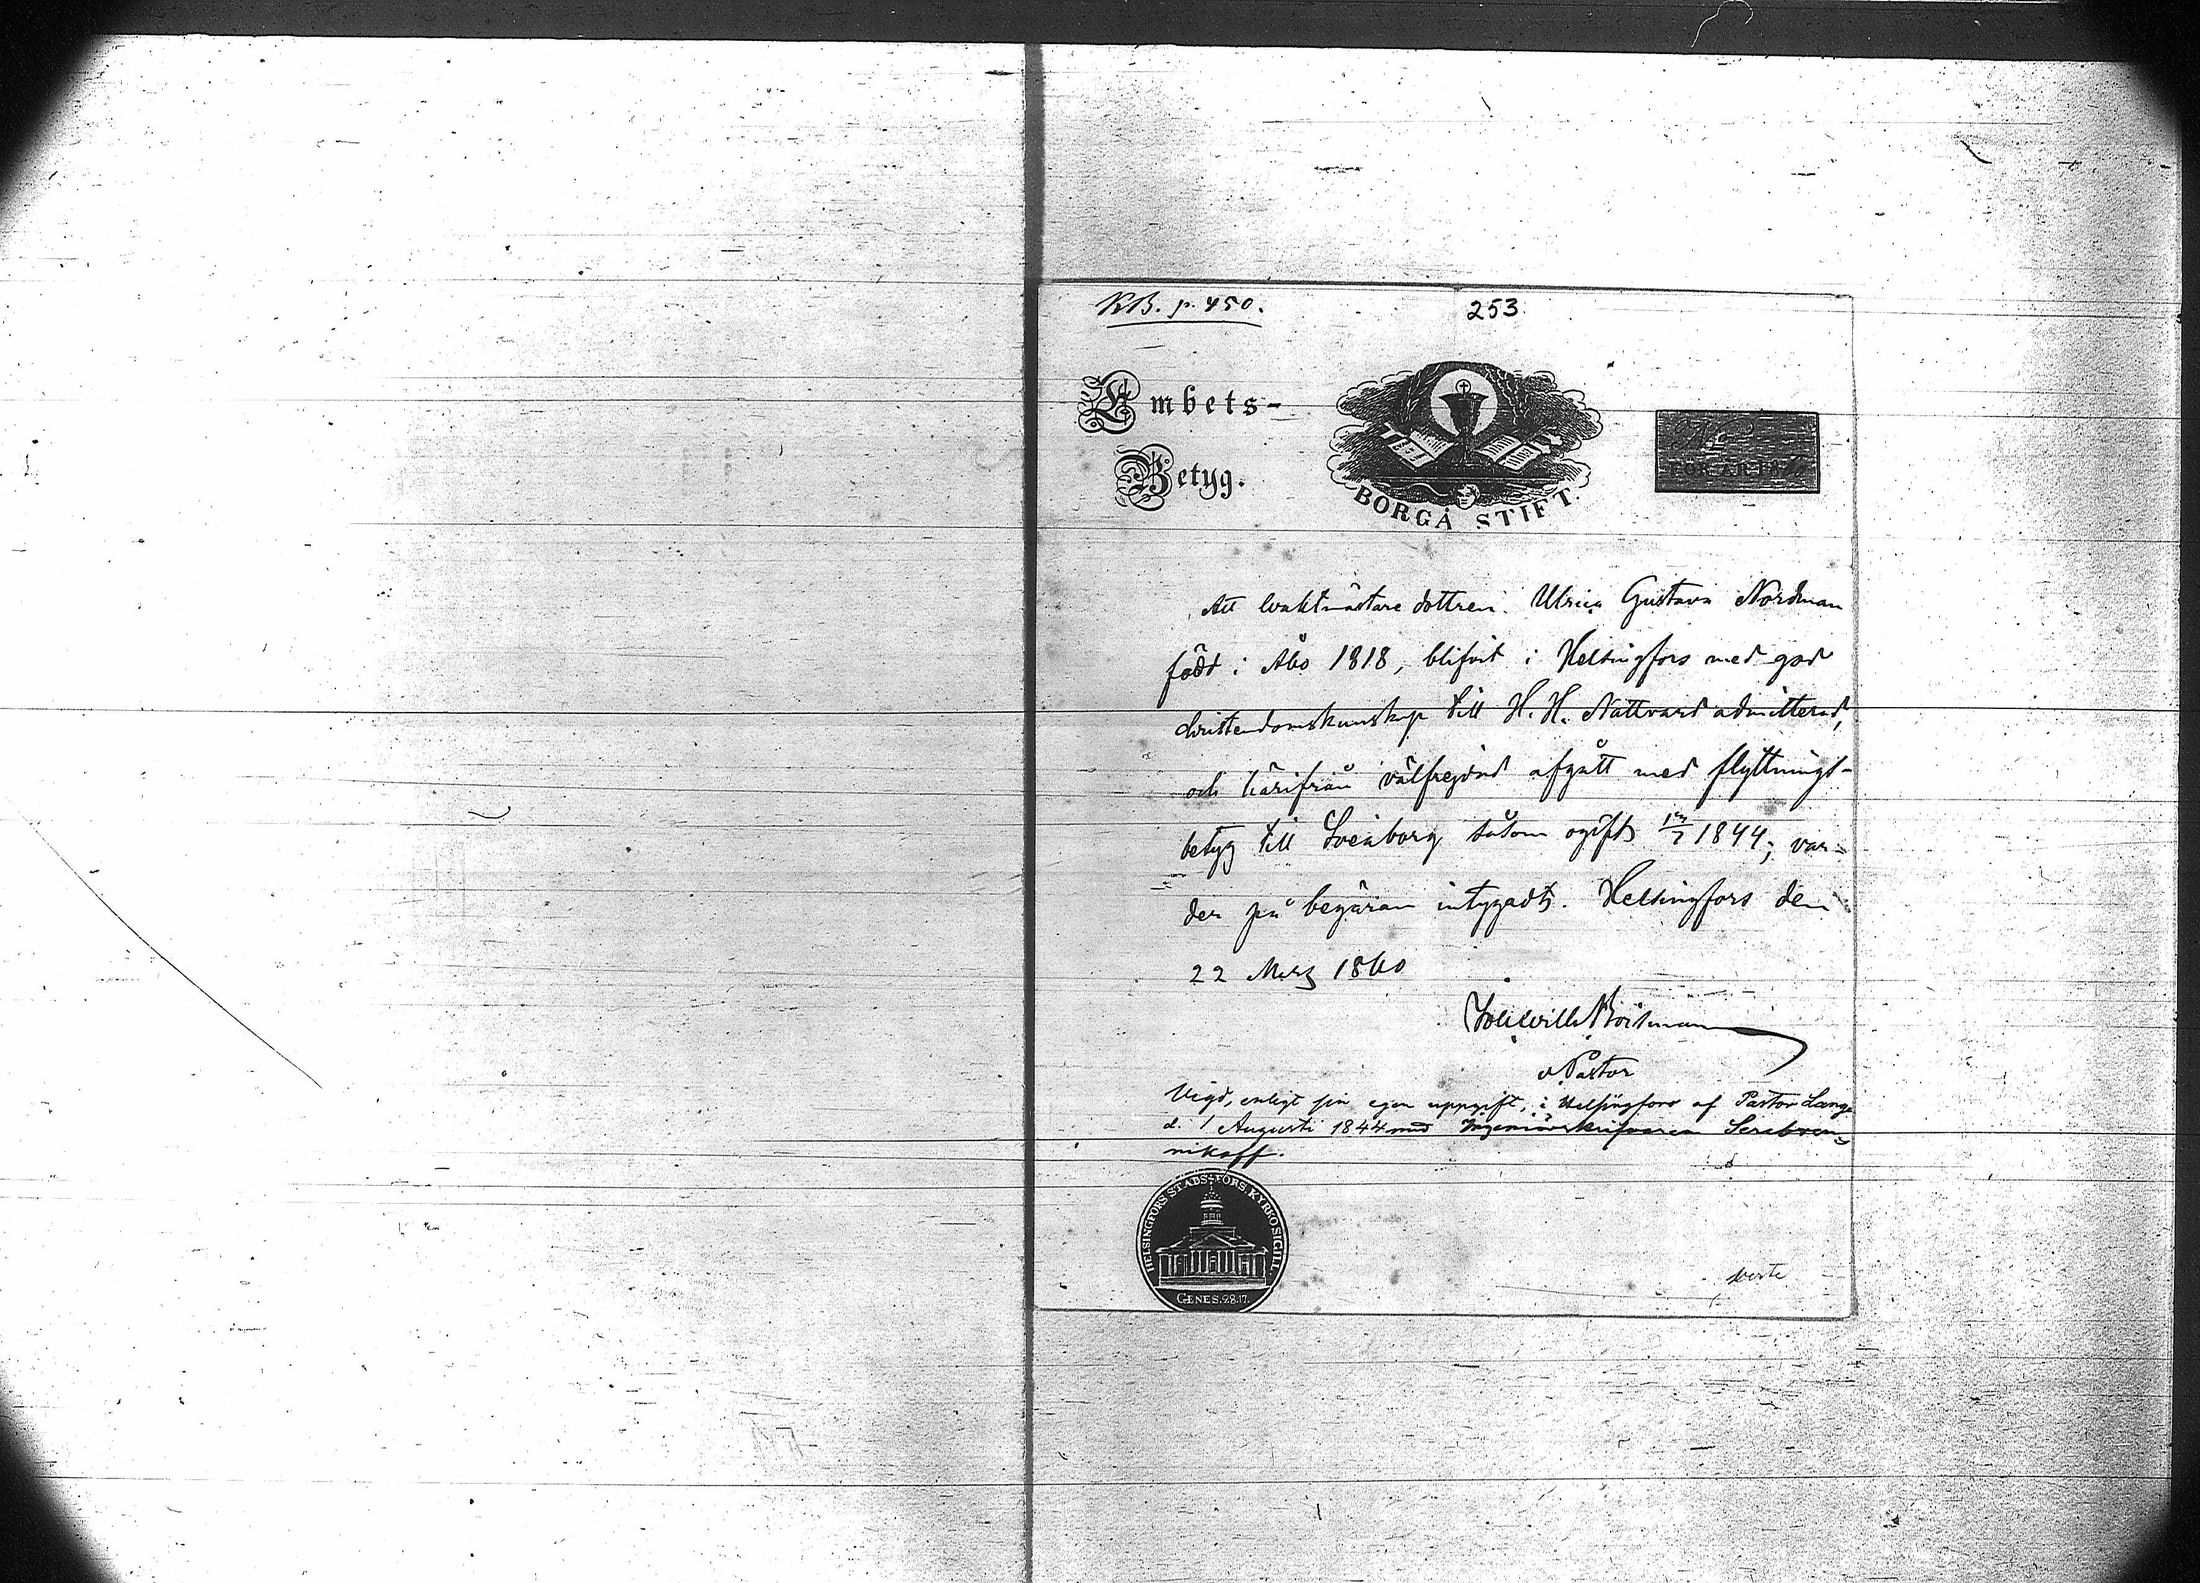 KB. p. 450.
253
Embets-
Betyg.
BORGÅ STIFT.
No
FÖR ÅR 18
Att Waktmästare dottren Ulrica Gustava Nordman
född i Åbo 1818, blifvit i Helsingfors med god
christendomskunskap till H. H. Nattvard admitterad,
och härifrån välfrejdad afgått med flyttnings-
betyg till Sveaborg såsom ogift 1844; var-
der på begäran intygadt. Helsingfors den
22 Mars 1860
v Pastor
Vigd, enligt sin egen uppgift, i Helsingfors af Pastor Lange
d. 1 Augusti 1844 med Ingeniörskrifvaren Serebren-
nikoff.
HELSINGFORS STADS-FÖRS. KYRKO SIGILL
GENES. 28.17.
verte